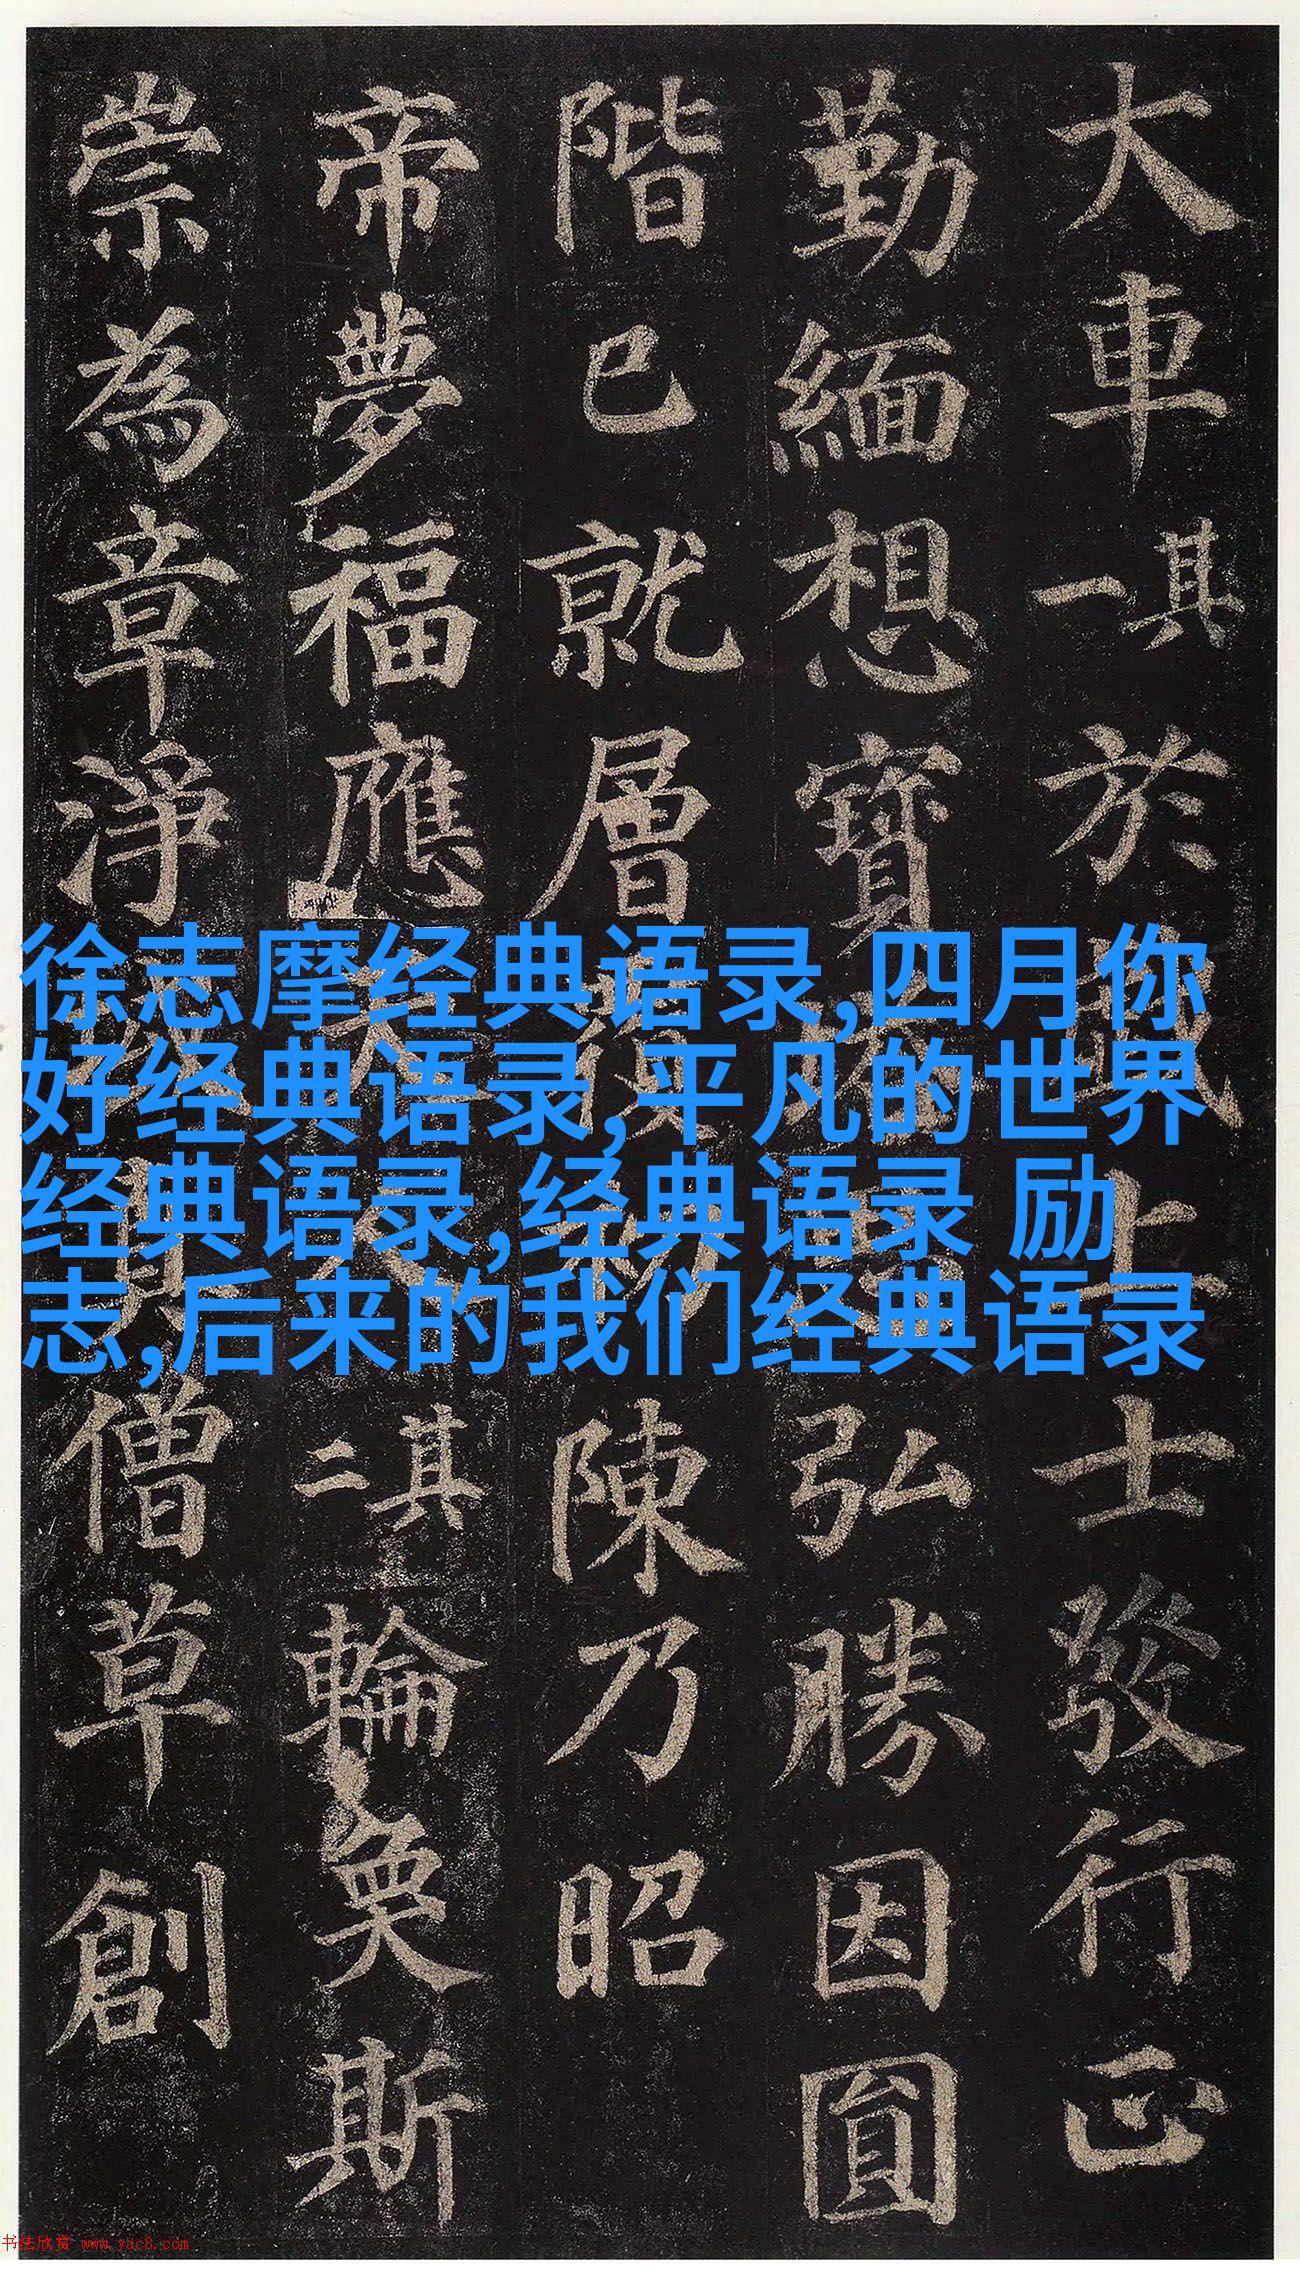 大車其一於上士發行正
勤緬想寶弘勝因圓
階已就層陳乃昭
帝夢福應其二輪奐斯
崇為章淨僧草創
徐志摩经典语录,四月你
好经典语录,平凡的世界
经典语录,经典语录 励
志,后来的我们经典语录
书法欣赏 www.yac8.com